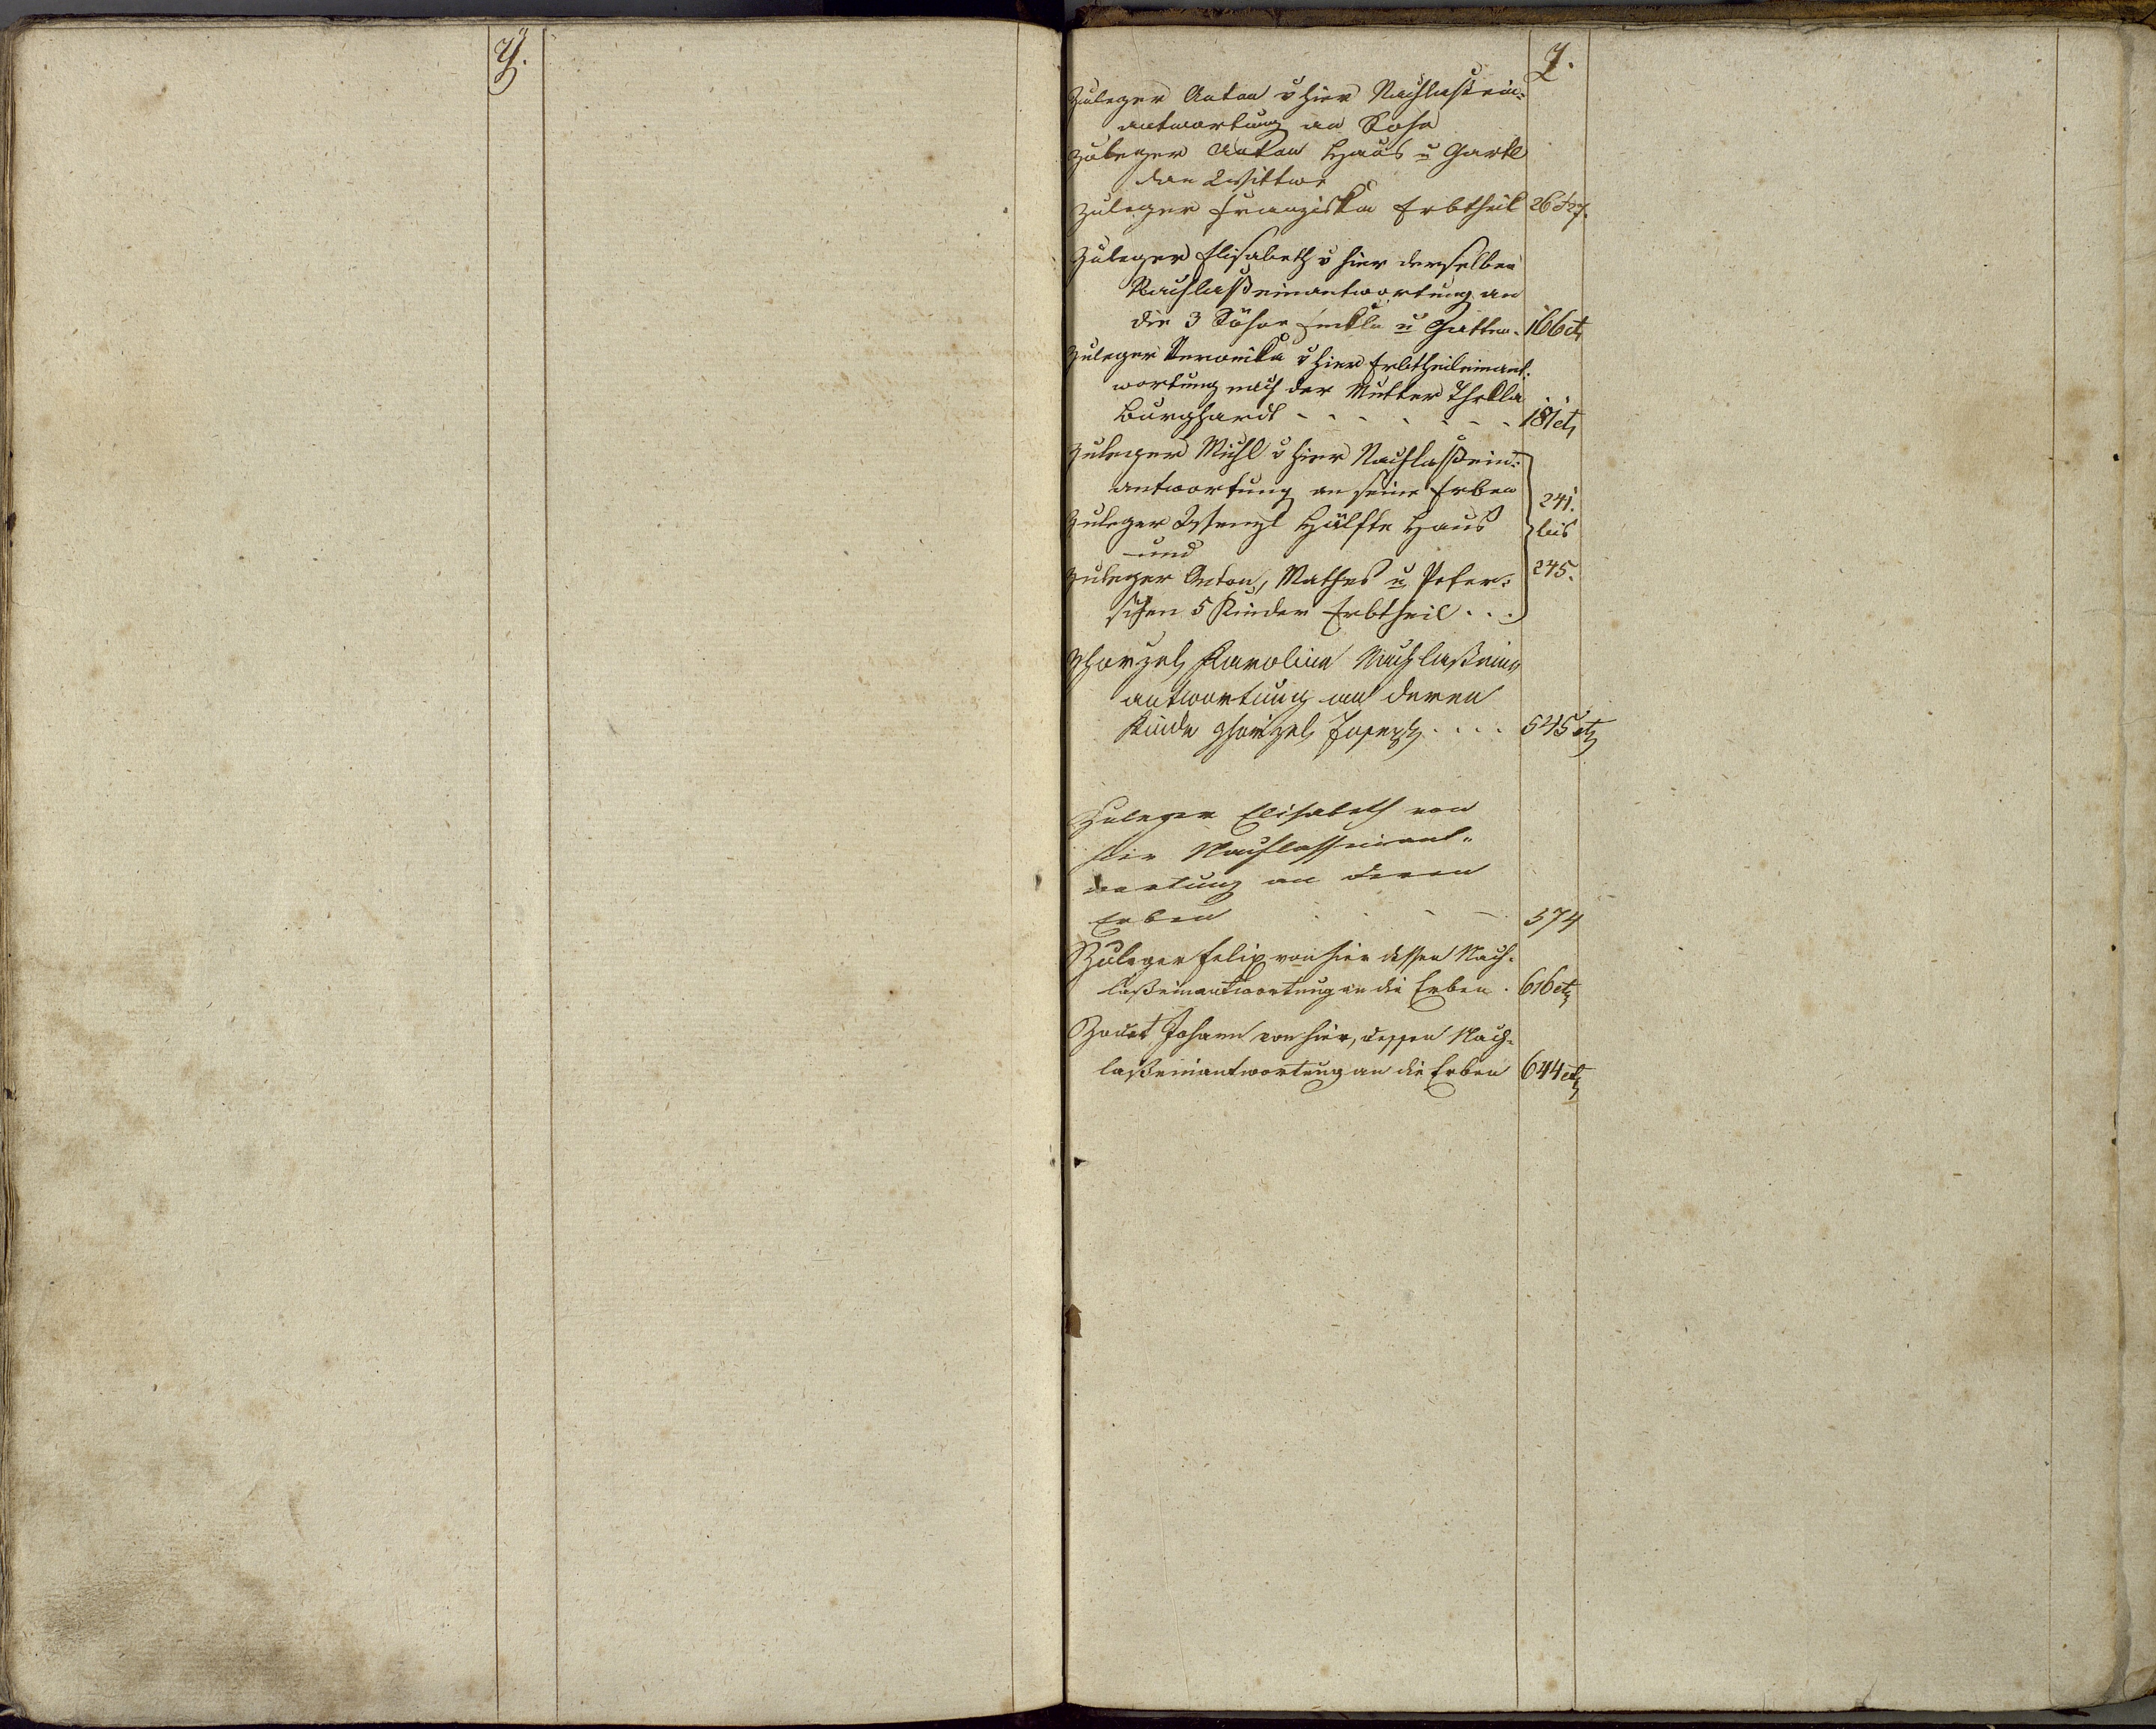 Ÿ.
Z.
Zuleger Anton v hier Nachlaßein=
antwortung an Sohn
Zuleger Anton Haus u Gartl
dan Wittwe
Zuleger Franziska Erbtheil 26 & 27.
Zuleger Elisabeth v hier derselben
Nachlaßeinantwortung an
die 3 Söhne u Gatten. 166 etz
Zuleger Veronika v hier Erbtheileinant-
wortung nach der Mutter Thekla
Burghardt - - - - - - 181 etz
Zuleger Michl v hier Nachlaßein=
antwortung an seine Erben
Zuleger Wenzl Hälfte Haus
und
Zuleger Anton, Mathes u Peter=
schen 5 Kinder Erbtheil . . .
241.
bis
245.
Karolina Nachlaßein=
antwortung an deren
Kinde Joseph . . . . 545 etz
Zuleger Elisabeth von
hier Nachlasseinant=
wortung an deren
Erben . . - - 574
Zuleger Felix von hier dessen Nach-
laßeinantwortung an die Erben . 616 etz
Johann von hier, dessen Nach-
laßeinantwortung an die Erben 644 etz